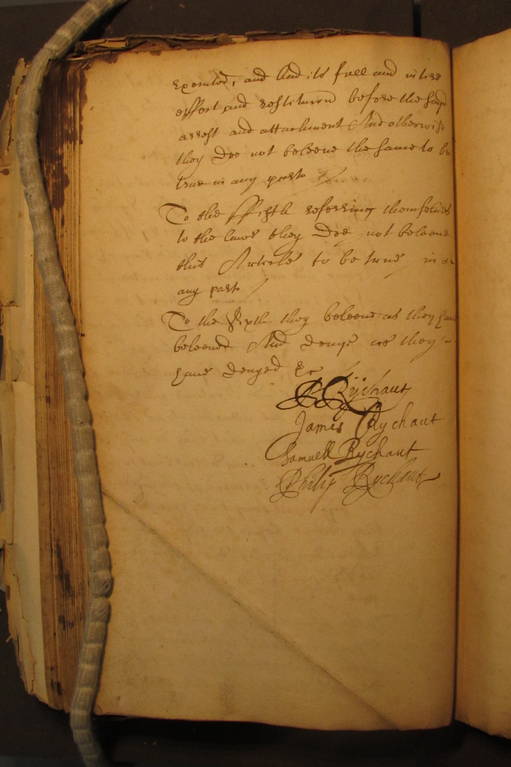 executed, and had its full and intire
effect and restitucon before the said
arrest and attachment And otherwise
they doe not beleeve the same to be
true in any parte
To the ffifth referring themselves
to the lawe they doe not beleeve
this Article to be true in
any parte
To the Sixth they beleeve as they have
beleeved And denye as they
have denyed &c
Rychaut
James Rychaut
Samuell Rychaut
Philip Rychaut